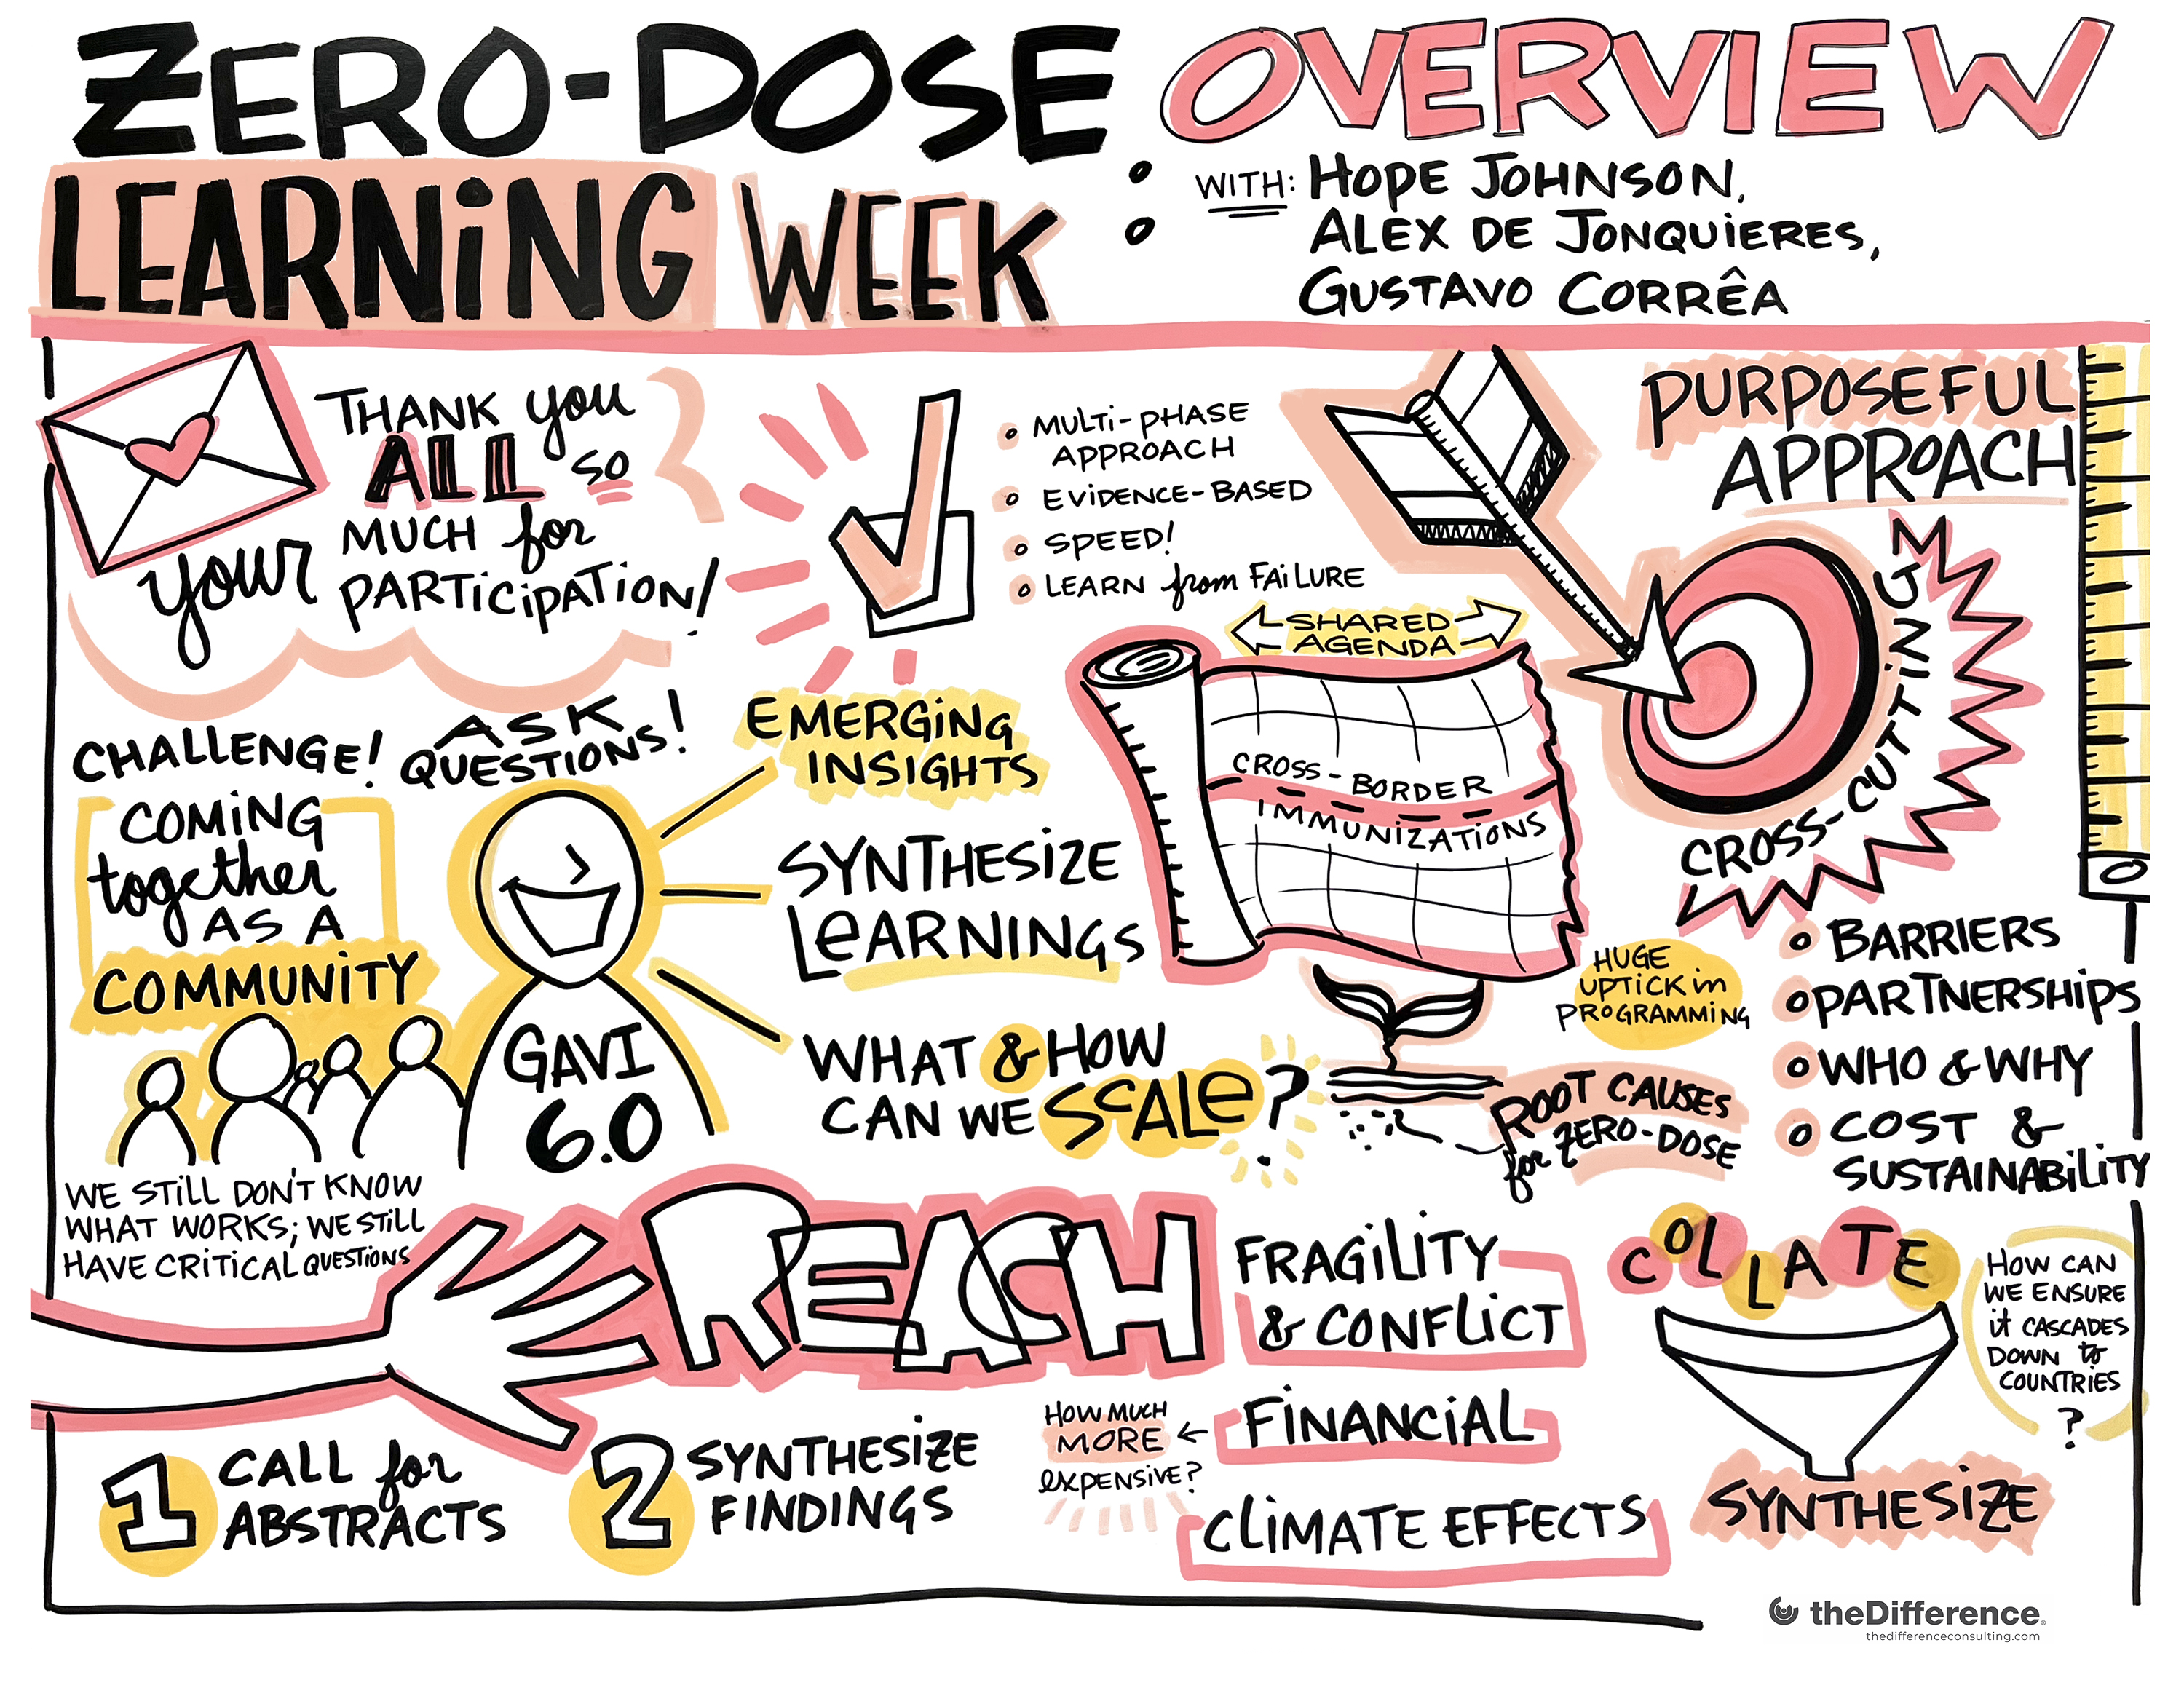 ZERO-DOSE
LEARNING WEEK:
OVERVIEW
WITH: HOPE JOHNSON,
ALEX DE JONQUIERES,
GUSTAVO CORRÊA
THANK you
ALL so
MUCH for
your PARTICIPATION!
MULTI-PHASE
APPROACH
EVIDENCE-BASED
SPEED!
LEARN from FAILURE
PURPOSEFUL
APPROACH
CROSS-CUTTING
BARRIERS
PARTNERSHIPS
WHO & WHY
COST &
SUSTAINABILITY
SHARED
AGENDA
CROSS-BORDER
IMMUNIZATIONS
CHALLENGE! ASK
QUESTIONS!
COMING
together
AS A
COMMUNITY
GAVI
6.0
EMERGING
INSIGHTS
SYNTHESIZE
LEARNINGS
WHAT & HOW
CAN WE SCALE?
HUGE
UPTICK in
PROGRAMMING
ROOT CAUSES
for ZERO-DOSE
WE STILL DON'T KNOW
WHAT WORKS; WE STILL
HAVE CRITICAL QUESTIONS
REACH
FRAGILITY
& CONFLICT
FINANCIAL
HOW MUCH
MORE
EXPENSIVE?
CLIMATE EFFECTS
COLLATE
SYNTHESIZE
HOW CAN
WE ENSURE
it CASCADES
DOWN to
COUNTRIES
?
1 CALL for
ABSTRACTS
2 SYNTHESIZE
FINDINGS
theDifference.
thedifferenceconsulting.com